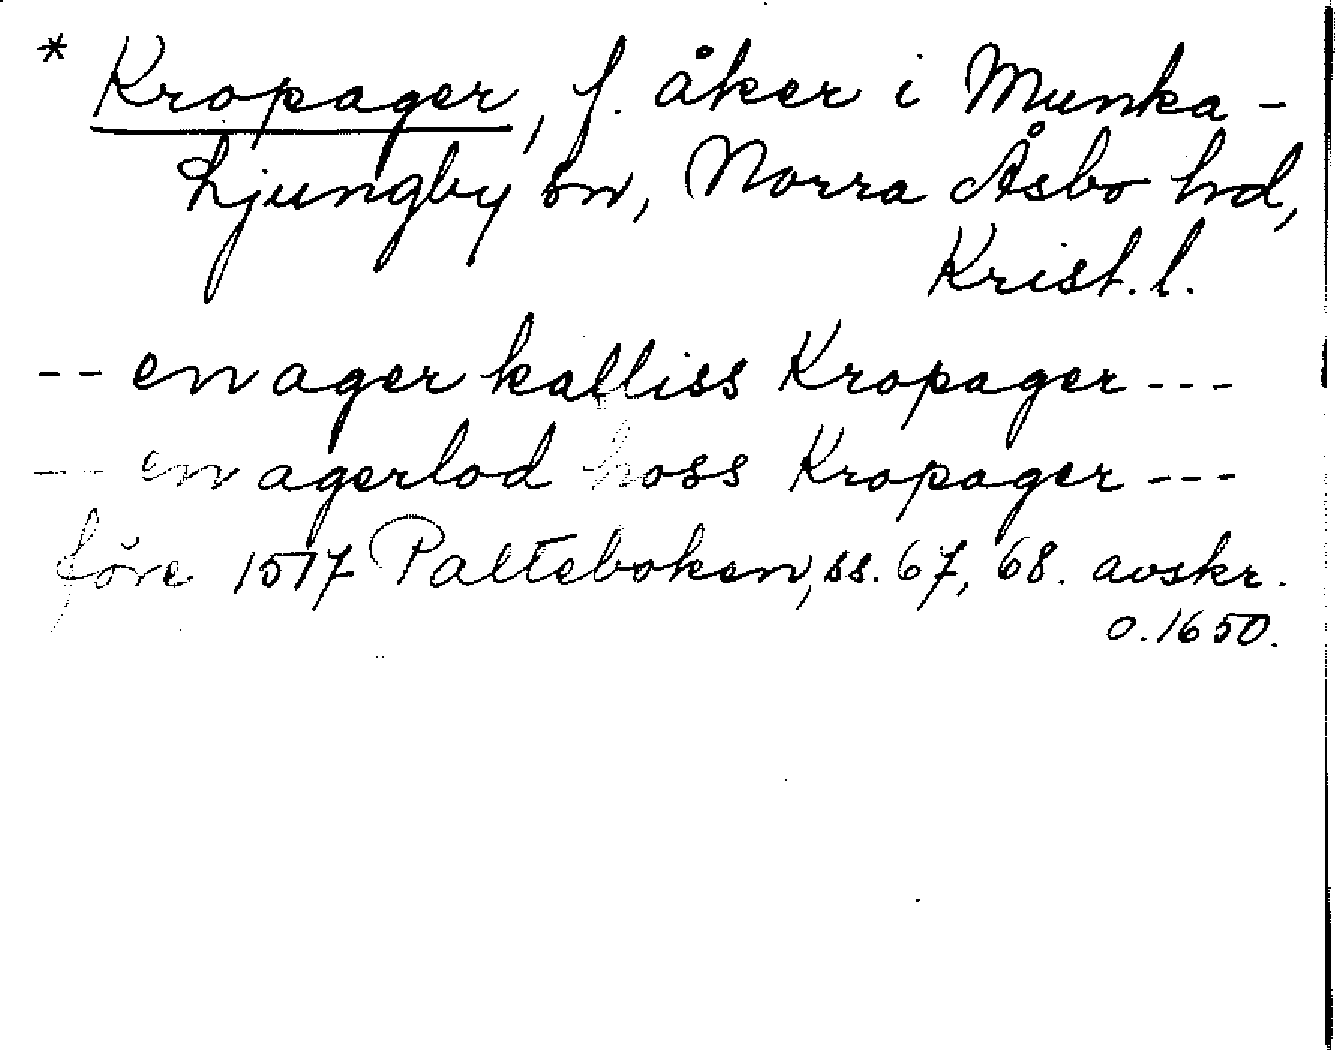 * Kropager, f. åker i Munka-
Ljungby sn, Norra Åsbo hd,
Krist. l.
-- en ager kalliss Kropager ---
-- en agerlod hoss Kropager ---
före 1517 Palteboken, ss. 67, 68. avskr.
o. 1650.